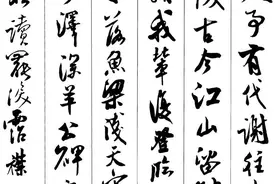 事有代謝往
古今江山留
我輩復登臨
落魚梁淺天寒
澤深羊公碑
讀罷淚霑襟